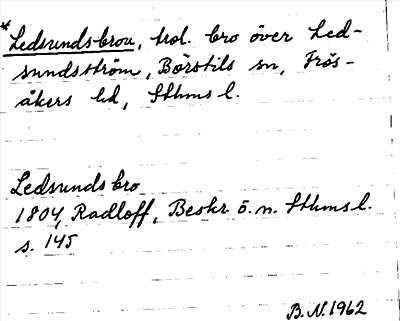 *Ledsundsbron, trol. bro över Led-
sundsström, Börstils sn, Frös-
åkers hd, Sthms l.
Ledsunds bro
1804, Radloff, Beskr. ö. n. Sthms l.
s. 145
B.N. 1962